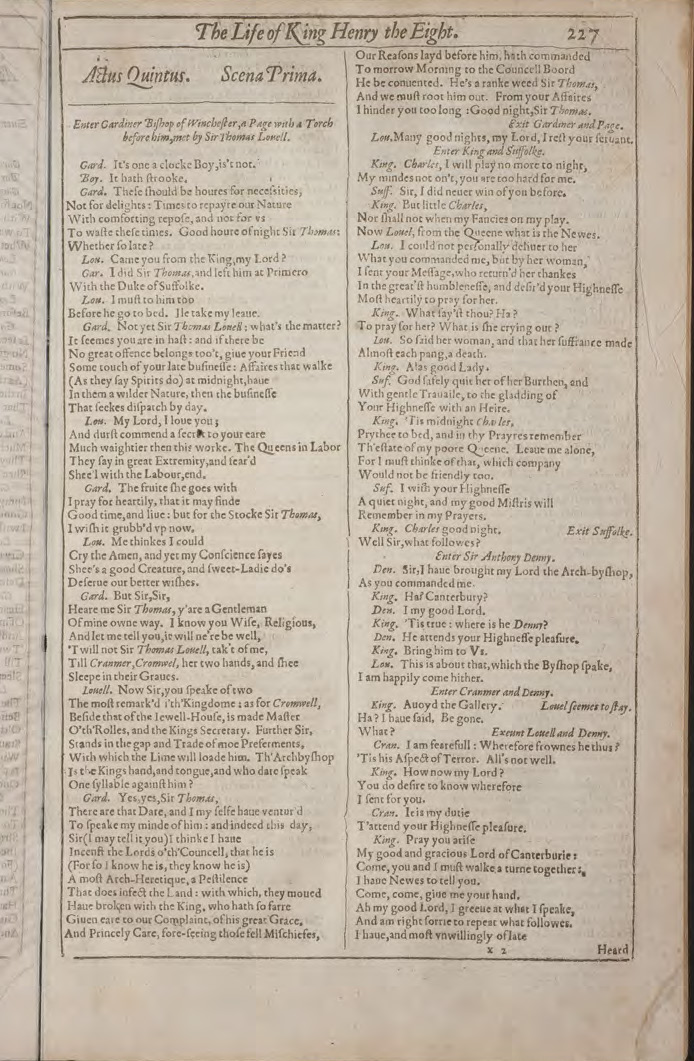 The Life of King Henry the Eight.
227
Actus Quintus. Scena Prima.
Enter Gardiner Bishop of Winchester, a Page with a Torch
before him, met by Sir Thomas Louell.
Gard. It's one a clocke Boy, is't not.
Boy. It hath strooke.
Gard. These should be houres for necessities,
Not for delights: Times to repayre our Nature
With comforting repose, and not for vs
To waste these times. Good houre of night Sir Thomas:
Whether so late?
Lou. Came you from the King, my Lord?
Gar. I did Sir Thomas, and left him at Primero
With the Duke of Suffolke.
Lou. I must to him too
Before he go to bed. Ile take my leaue.
Gard. Not yet Sir Thomas Louell: what's the matter?
It seemes you are in hast: and if there be
No great offence belongs too't, giue your Friend
Some touch of your late businesse: Affaires that walke
(As they say Spirits do) at midnight, haue
In them a wilder Nature, then the businesse
That seekes dispatch by day.
Lou. My Lord, I loue you;
And durst commend a secret to your eare
Much waightier then this worke. The Queens in Labor
They say in great Extremity, and fear'd
Shee'l with the Labour, end.
Gard. The fruite she goes with
I pray for heartily, that it may finde
Good time, and liue: but for the Stocke Sir Thomas,
I wish it grubb'd vp now.
Lou. Me thinkes I could
Cry the Amen, and yet my Conscience sayes
Shee's a good Creature, and sweet-Ladie do's
Deserue our better wishes.
Gard. But Sir, Sir,
Heare me Sir Thomas, y'are a Gentleman
Of mine owne way. I know you Wise, Religious,
And let me tell you, it will ne're be well,
'Twill not Sir Thomas Louell, tak't of me,
Till Cranmer, Cromwel, her two hands, and shee
Sleepe in their Graues.
Louell. Now Sir, you speake of two
The most remark'd i'th'Kingdome: as for Cromwell,
Beside that of the Iewell-House, is made Master
O'th'Rolles, and the Kings Secretary. Further Sir,
Stands in the gap and Trade of moe Preferments,
With which the Lime will loade him. Th'Archbyshop
Is the Kings hand, and tongue, and who dare speak
One syllable against him?
Gard. Yes, yes, Sir Thomas,
There are that Dare, and I my selfe haue ventur'd
To speake my minde of him: and indeed this day,
Sir (I may tell it you) I thinke I haue
Incenst the Lords o'th'Councell, that he is
(For so I know he is, they know he is)
A most Arch-Heretique, a Pestilence
That does infect the Land: with which, they moued
Haue broken with the King, who hath so farre
Giuen eare to our Complaint, of his great Grace,
And Princely Care, fore-seeing those fell Mischiefes,
Our Reasons layd before him, hath commanded
To morrow Morning to the Councell Boord
He be conuented. He's a ranke weed Sir Thomas,
And we must root him out. From your Affaires
I hinder you too long: Good night, Sir Thomas.
Exit Gardiner and Page.
Lou. Many good nights, my Lord, I rest your seruant.
Enter King and Suffolke.
King. Charles, I will play no more to night,
My mindes not on't, you are too hard for me.
Suff. Sir, I did neuer win of you before.
King. But little Charles,
Nor shall not when my Fancies on my play.
Now Louel, from the Queene what is the Newes.
Lou. I could not personally deliuer to her
What you commanded me, but by her woman,
I sent your Message, who return'd her thankes
In the great'st humblenesse, and desir'd your Highnesse
Most heartily to pray for her.
King. What say'st thou? Ha?
To pray for her? What is she crying out?
Lou. So said her woman, and that her suffrance made
Almost each pang, a death.
King. Alas good Lady.
Suf. God safely quit her of her Burthen, and
With gentle Trauaile, to the gladding of
Your Highnesse with an Heire.
King. 'Tis midnight Charles,
Prythee to bed, and in thy Prayres remember
Th'estate of my poore Queene. Leaue me alone,
For I must thinke of that, which company
Would not be friendly too.
Suf. I wish your Highnesse
A quiet night, and my good Mistris will
Remember in my Prayers.
King. Charles good night. Exit Suffolke.
Well Sir, what followes?
Enter Sir Anthony Denny.
Den. Sir, I haue brought my Lord the Arch-byshop,
As you commanded me.
King. Ha? Canterbury?
Den. I my good Lord.
King. 'Tis true: where is he Denny?
Den. He attends your Highnesse pleasure.
King. Bring him to Vs.
Lou. This is about that, which the Byshop spake,
I am happily come hither.
Enter Cranmer and Denny.
King. Auoyd the Gallery. Louel seemes to stay.
Ha? I haue said. Be gone.
What? Exeunt Louell and Denny.
Cran. I am fearefull: Wherefore frownes he thus?
'Tis his Aspect of Terror. All's not well.
King. How now my Lord?
You do desire to know wherefore
I sent for you.
Cran. It is my dutie
T'attend your Highnesse pleasure.
King. Pray you arise
My good and gracious Lord of Canterburie:
Come, you and I must walke a turne together:
I haue Newes to tell you.
Come, come, giue me your hand.
Ah my good Lord, I greeue at what I speake,
And am right sorrie to repeat what followes.
I haue, and most vnwillingly of late
x 2
Heard